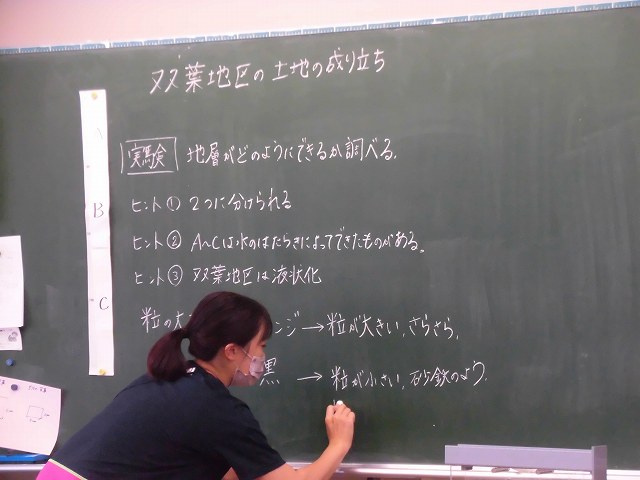 双葉地区の土地の成り立ち
実験 地層がどのようにできるか調べる。
ヒント① 2つに分けられる
ヒント② A〜Cは水のはたらきによってできたものがある。
ヒント③ 双葉地区は液状化
粒の大 ンジ→粒が大きい、さらさら。
黒 →粒が小さい、砂鉄のよう。
A
B
C